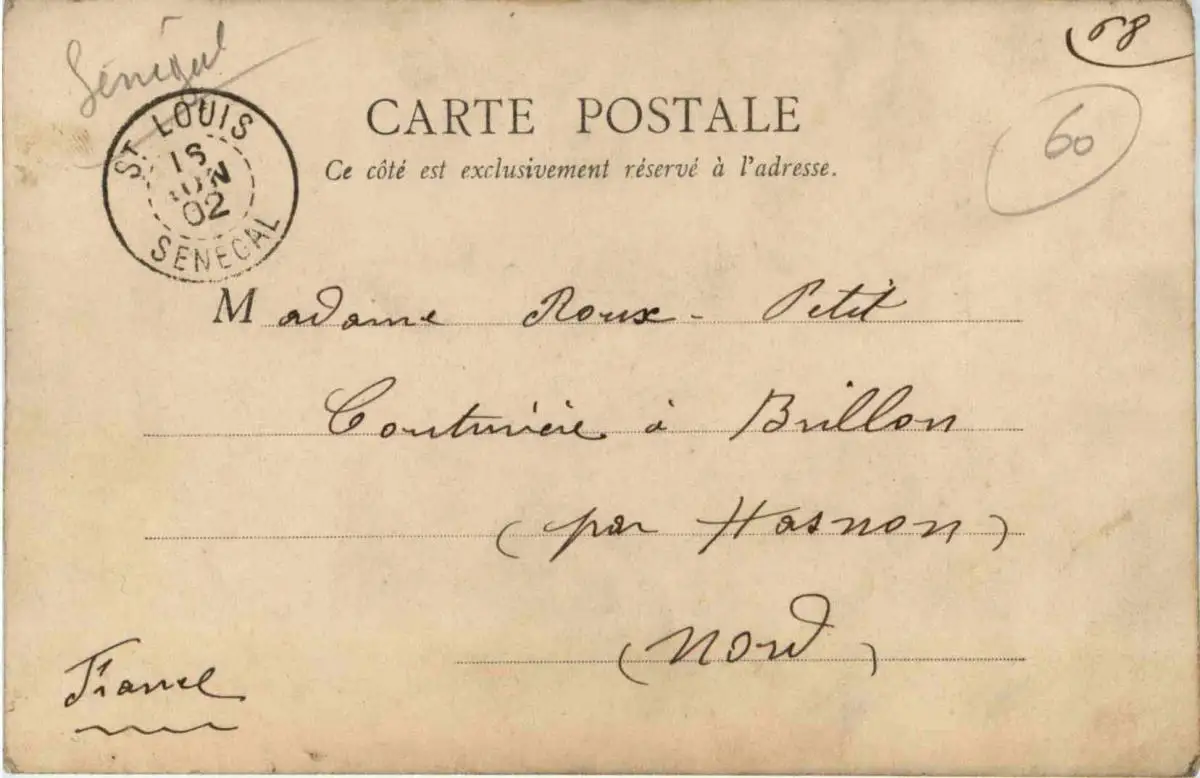 Sénégal
68
60
ST LOUIS
JUIN
02
SENEGAL
CARTE POSTALE
Ce côté est exclusivement réservé à l'adresse.
Madame Roux-Petit
Couturière à Brillon
(par Hasnon)
(Nord)
France